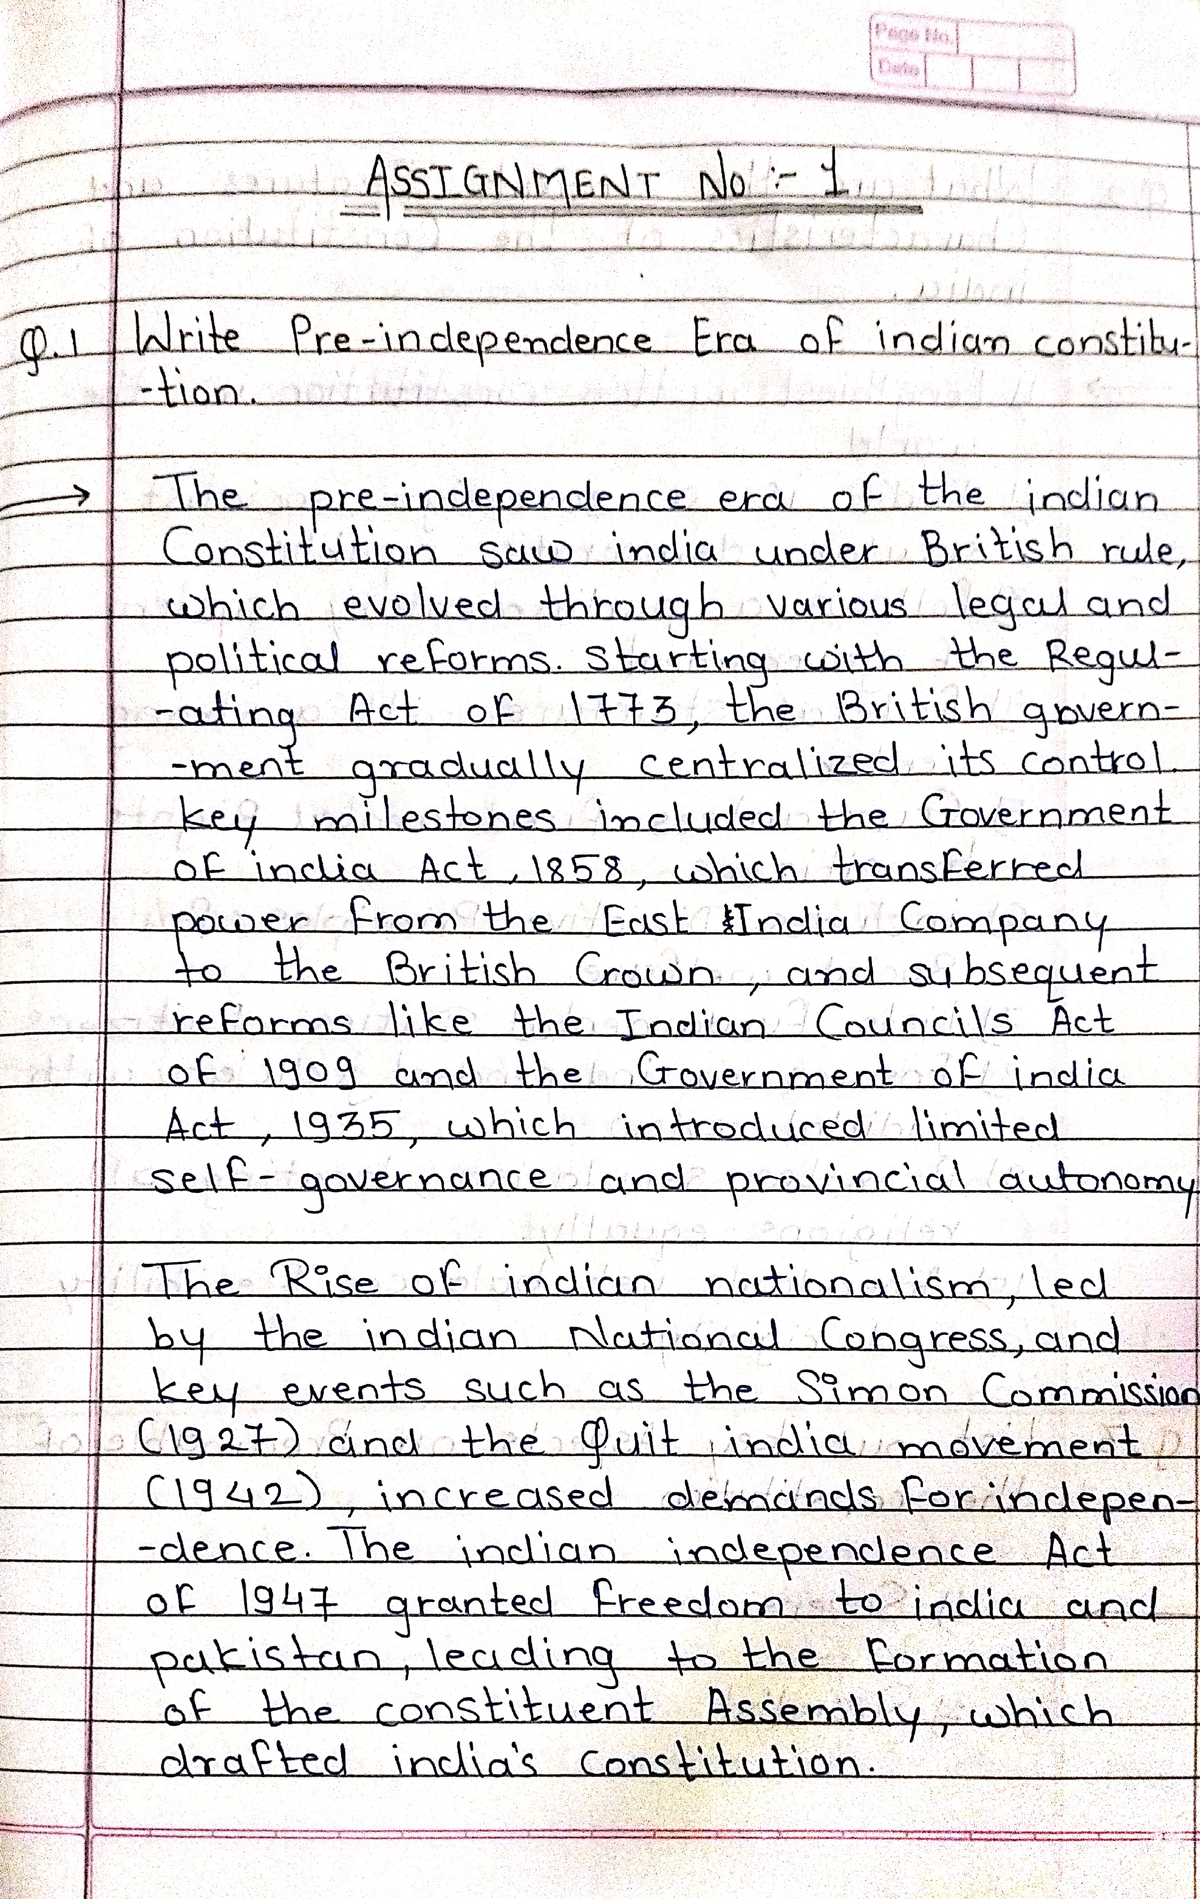 Page No.
Date
ASSIGNMENT No :- 1
Q.1 Write Pre-independence Era of indian constitu-
-tion.
→ The pre-independence era of the indian
Constitution saw india under British rule,
which evolved through various legal and
political reforms. Starting with the Regul-
-ating Act of 1773, the British govern-
-ment gradually centralized its control.
key milestones included the Government
of india Act, 1858, which transferred
power from the East India Company
to the British Crown, and subsequent
reforms like the Indian Councils Act
of 1909 and the Government of india
Act, 1935, which introduced limited
self-governance and provincial autonomy
The Rise of indian nationalism, led
by the indian National Congress, and
key events such as the Simon Commission
(1927) and the Quit india movement
(1942), increased demands for indepen-
-dence. The indian independence Act
of 1947 granted freedom to india and
pakistan, leading to the formation
of the constituent Assembly, which
drafted india's constitution.